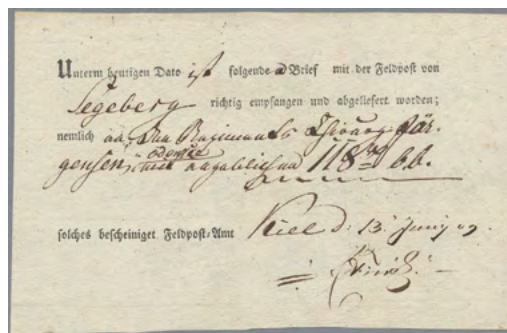 Unterm heutigen Dato ist folgender Brief mit der Feldpost von
Segeberg richtig empfangen und abgeliefert worden;
nemlich an den Regiments Chirurg Jür-
gensen, odensee angeblich 118
solches bescheiniget Feldpost-Amt Kiel d. 13. Juny 09.